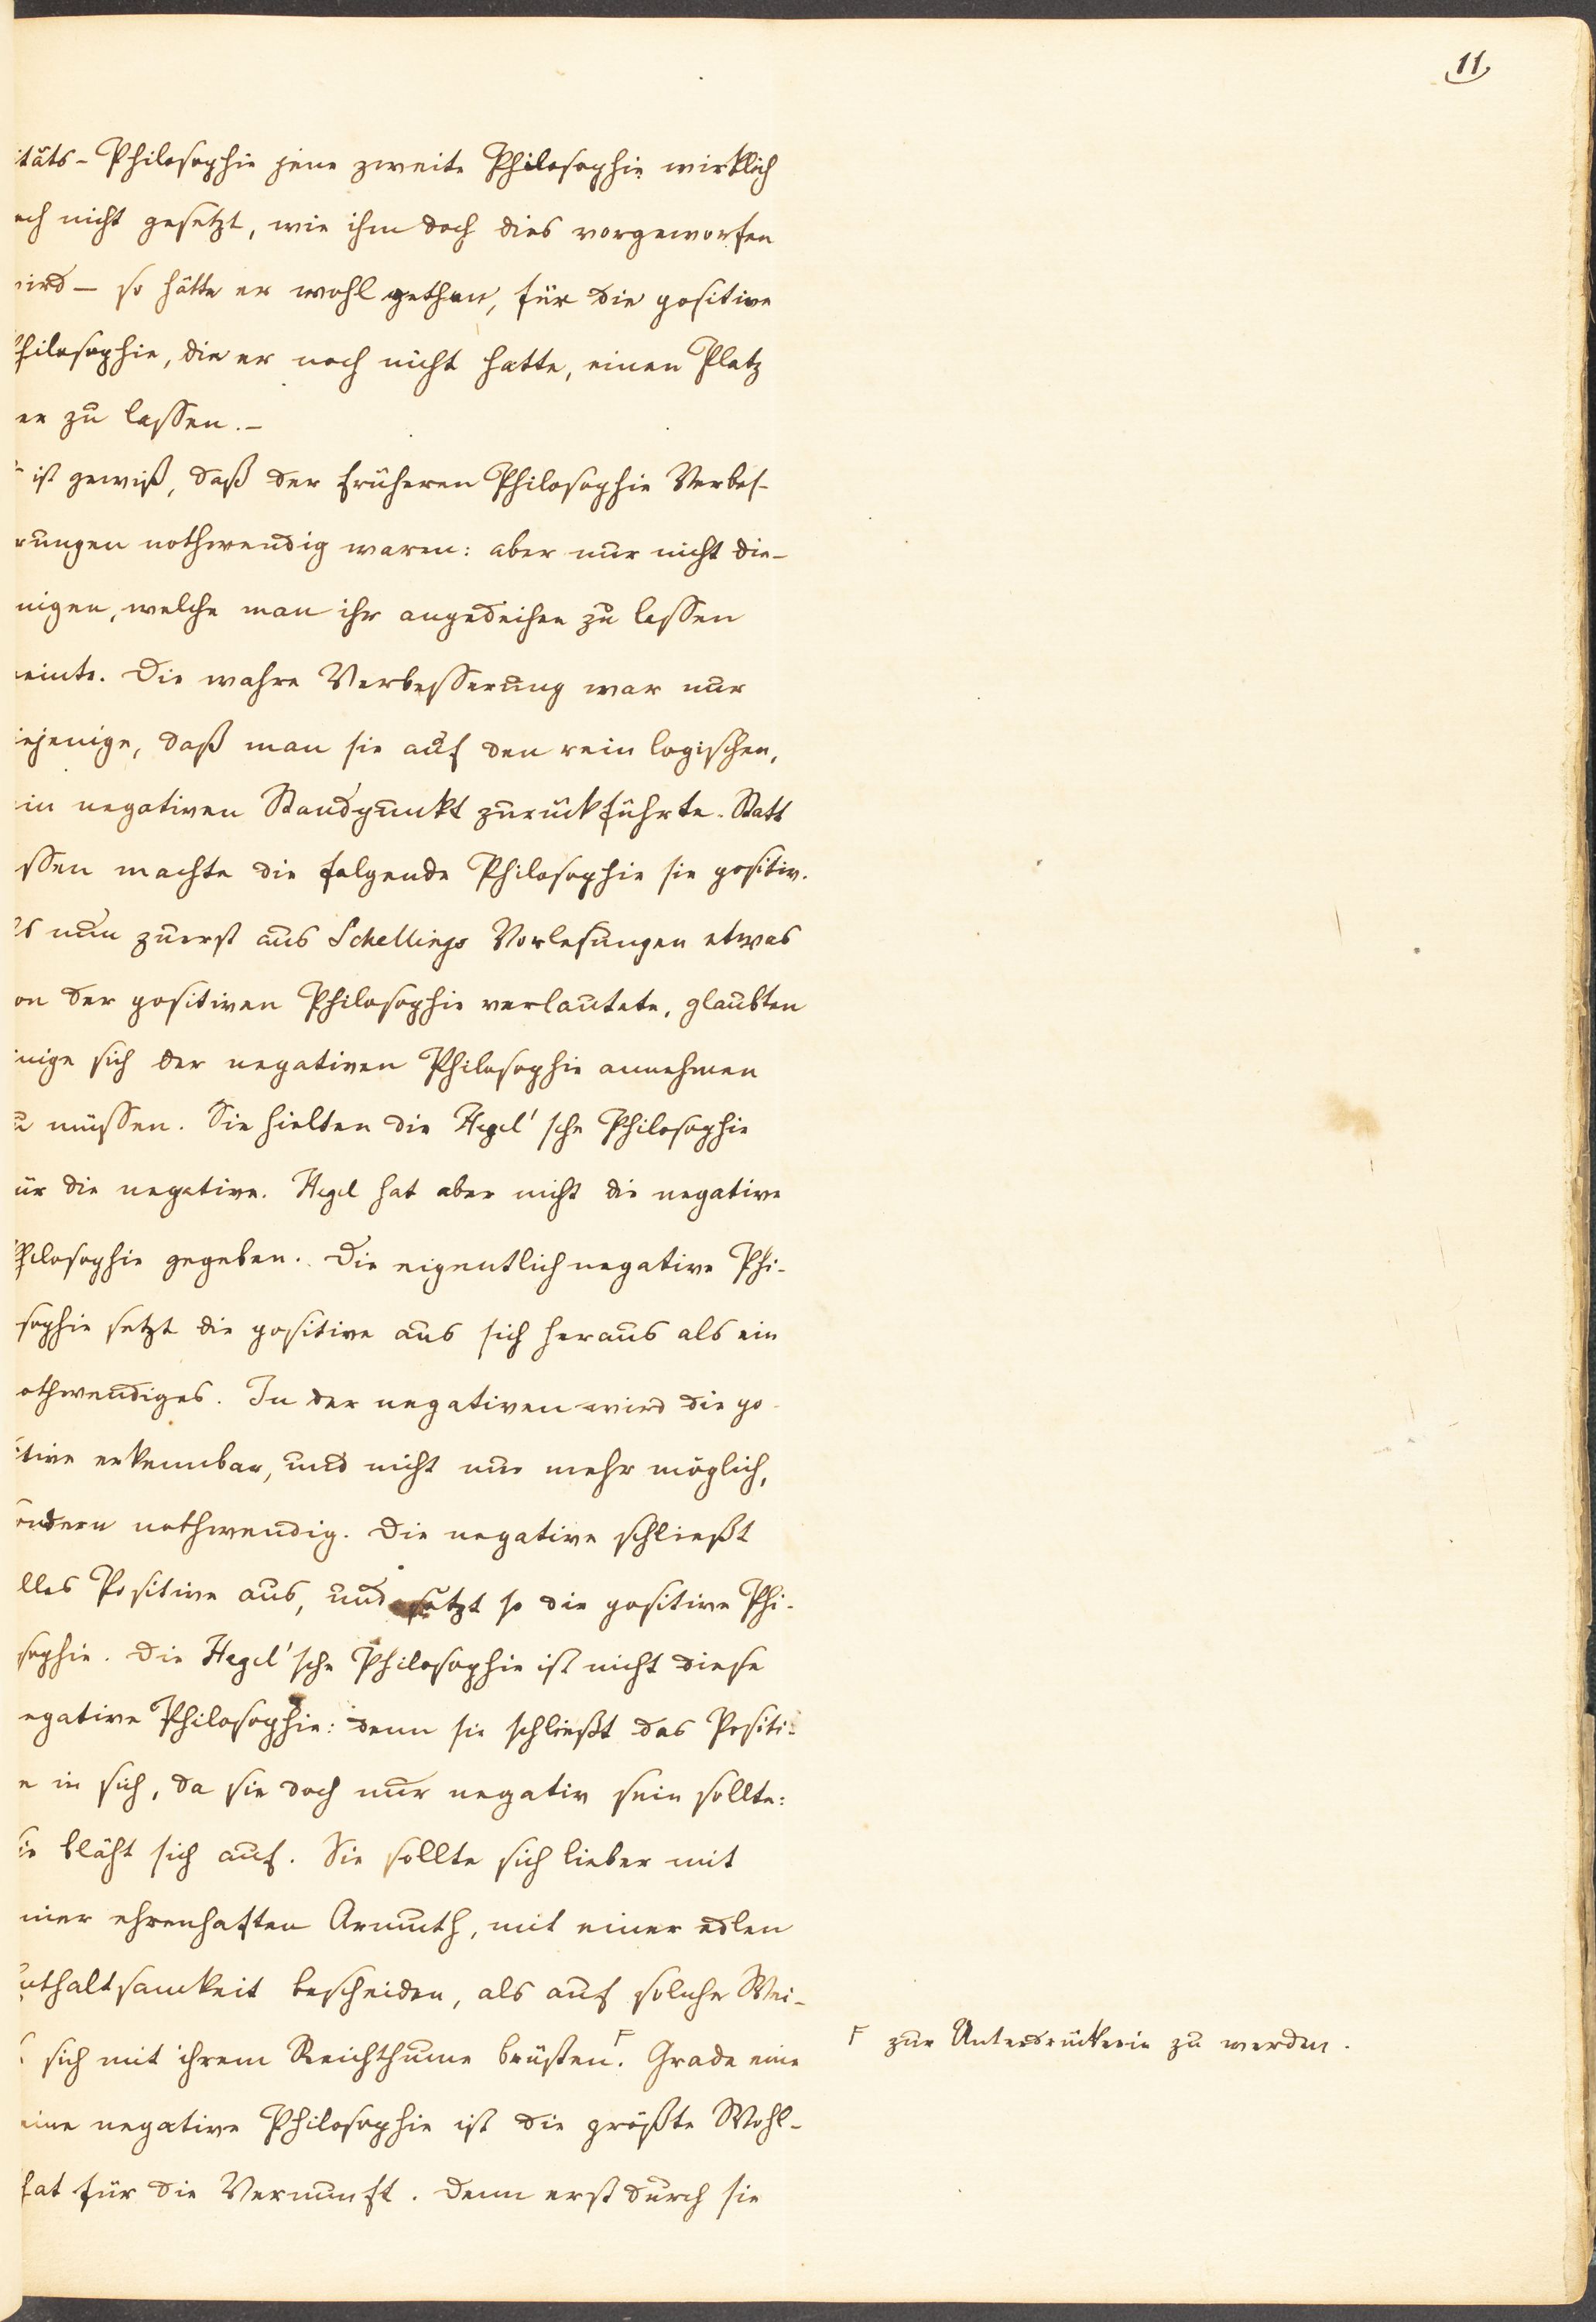 11
itäts-Philosophie jene zweite Philosophie wirklich
och nicht gesetzt, wie ihm doch dies vorgeworfen
ird — so hätte er wohl gethan, für die positive
hilosophie, die er noch nicht hatte, einen Platz
er zu lassen.—
ist gewiß, daß der früheren Philosophie Verbes-
rungen nothwendig waren: aber nur nicht die-
nigen, welche man ihr angedeihen zu lassen
einte. Die wahre Verbesserung war nur
iejenige, daß man sie auf den rein logischen,
in negativen Standpunkt zurückführte. Statt
ssen machte die folgende Philosophie sie positiv.
ls nun zuerst aus Schellings Vorlesungen etwas
on der positiven Philosophie verlautete, glaubten
inige sich der negativen Philosophie annehmen
u müssen. Sie hielten die Hegel'sche Philosophie
ür die negative. Hegel hat aber nicht die negative
hilosophie gegeben. Die eigentlich negative Phi-
sophie setzt die positive aus sich heraus als ein
othwendiges. In der negativen wird die po-
itive erkennbar, und nicht nur mehr möglich,
ondern nothwendig. Die negative schließt
lles Positive aus, und setzt so die positive Phi-
sophie. Die Hegel'sche Philosophie ist nicht diese
egative Philosophie: denn sie schließt das Positi-
e in sich, da sie doch nur negativ sein sollte:
ie bläht sich auf. Sie sollte sich lieber mit
iner ehrenhaften Armuth, mit einer edlen
nthaltsamkeit bescheiden, als auf solche Wei-
sich mit ihrem Reichthume brüsten. F Grade eine
eine negative Philosophie ist die größte Wohl-
hat für die Vernunft. Denn erst durch sie
F zur Unterdrückerin zu werden.